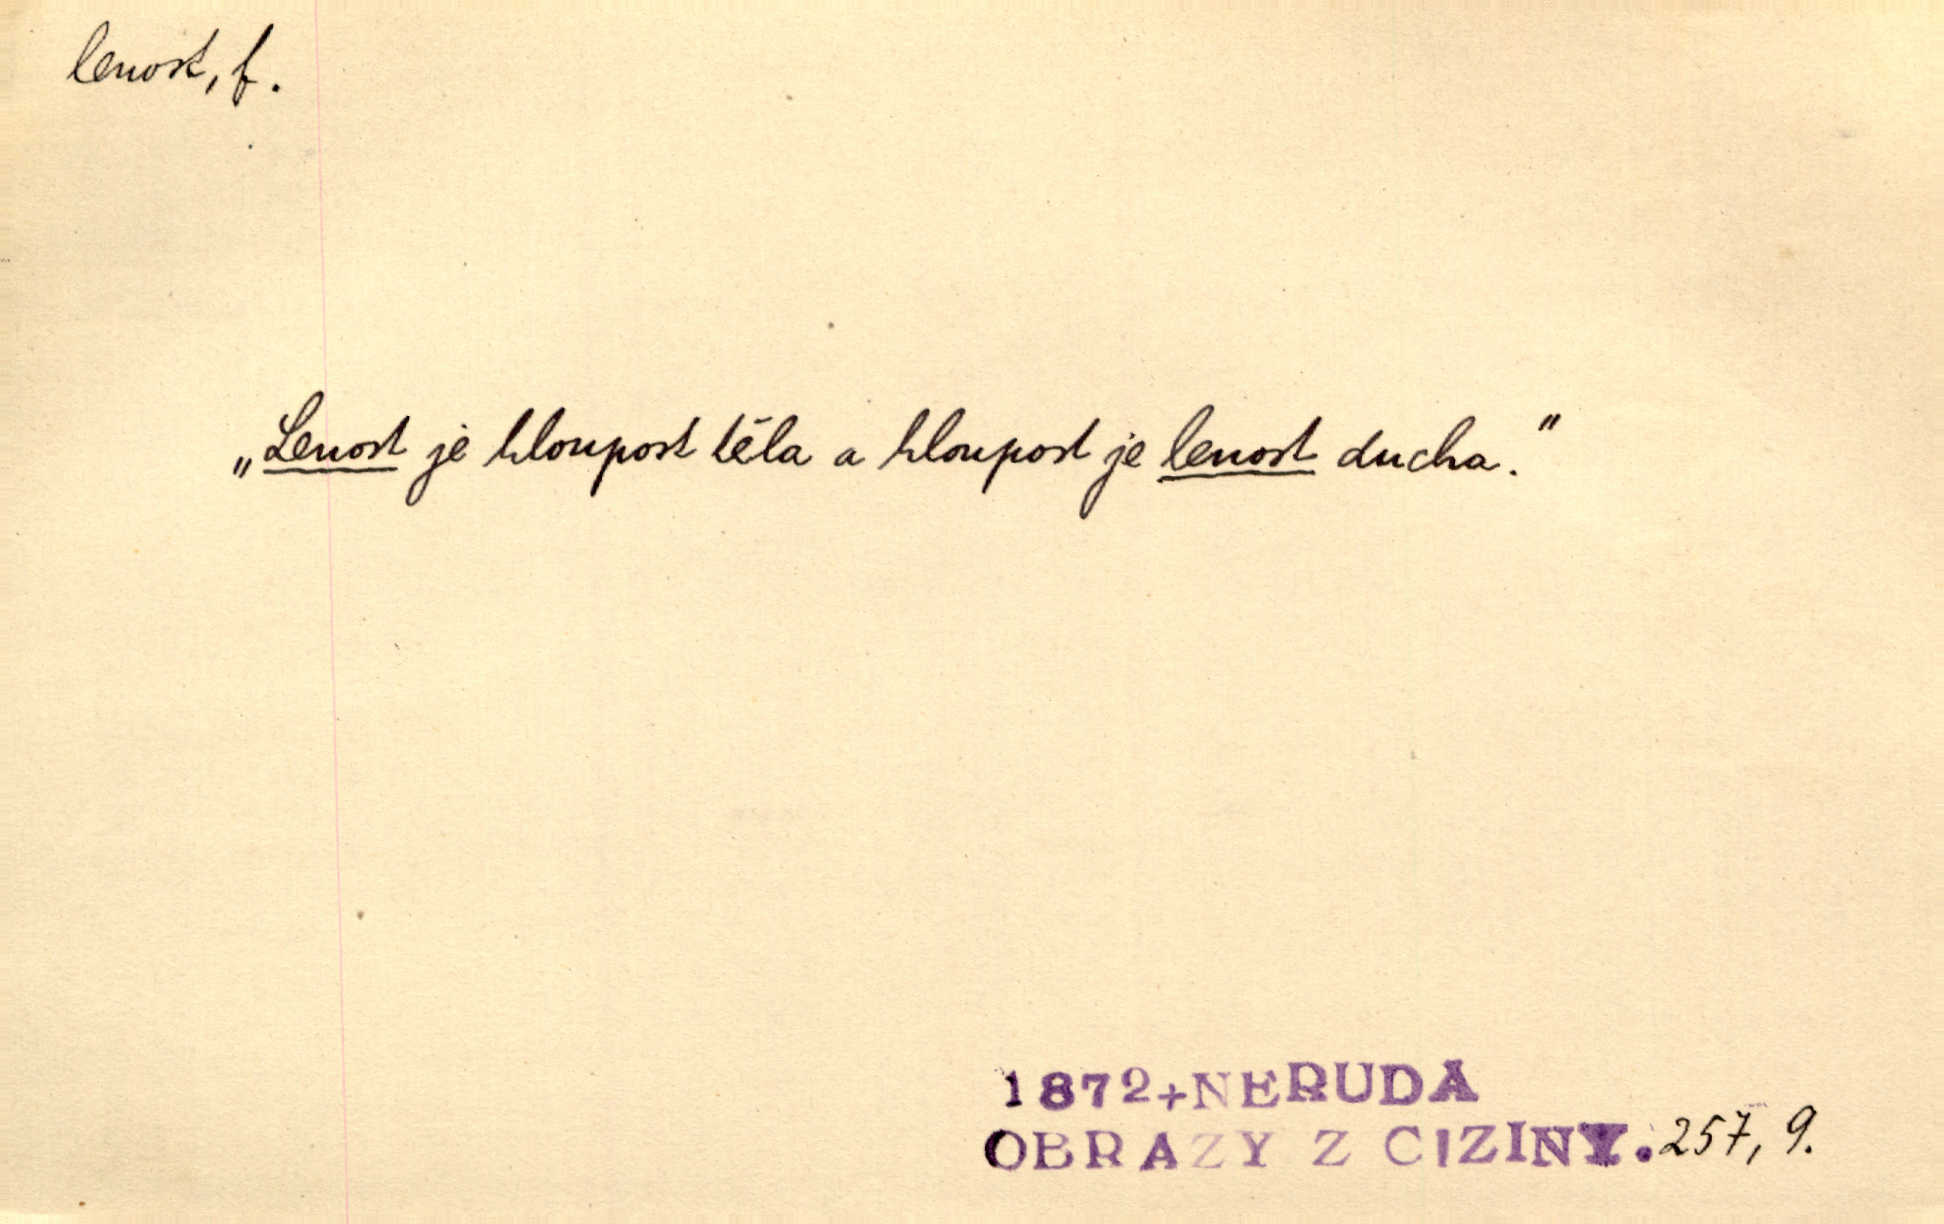 lenost, f.
„Lenost je hloupost těla a hloupost je lenost ducha."
1872+NERUDA
OBRAZY Z CIZINY. 257, 9.